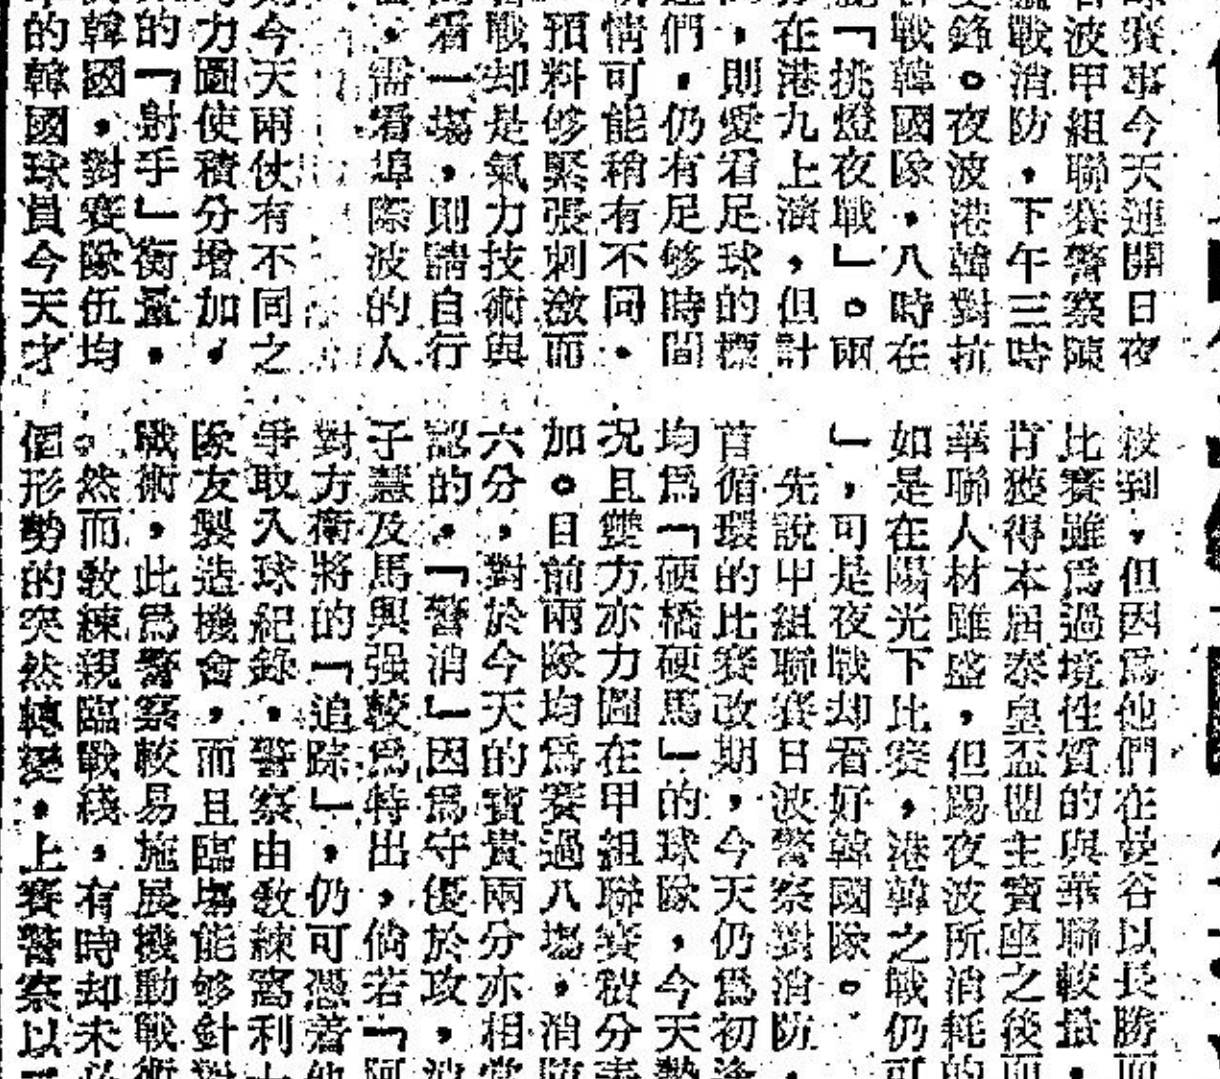 賽事今天連開日夜
波甲組聯賽警察陳
戰消防，下午三時
鋒。夜波港韓對抗
戰韓國隊，八時在
「挑燈夜戰」。兩
在港九上演，但計
，則愛看足球的標
們，仍有足够時間
情可能稍有不同，
預料够緊張刺激而
戰却是氣力技術與
看一場，則請自行
，需看埠際波的人
今天兩伙有不同之
力圖使積分增加，
的「射手」衡量，
韓國，對賽隊伍均
的韓國球員今天才
到，但因爲他們在曼谷以長勝而
比賽雖爲過境性質的與華聯較量，
肯獲得本屆泰皇盃盟主寶座之後而
華聯人材雖盛，但踢夜波所消耗的
如是在陽光下比賽，港韓之戰仍可
」，可是夜戰却看好韓國隊。
先說甲組聯賽日波警察對消防，
首循環的比賽改期，今天仍爲初逢
均爲「硬橋硬馬」的球隊，今天勢
况且雙方亦力圖在甲組聯賽積分表
加。目前兩隊均爲賽過八場，消防
六分，對於今天的寶貴兩分亦相當
認的，「警消」因爲守優於攻，
子慧及馬興强較爲特出，倘若「阿
對方衛將的「追踪」，仍可憑着他
爭取入球紀錄，警察由敎練窩利
隊友製造機會，而且臨場能够針對
戰術，此爲警察較易施展機動戰術
。然而敎練親臨戰綫，有時却未必
個形勢的突然轉變，上賽警察以